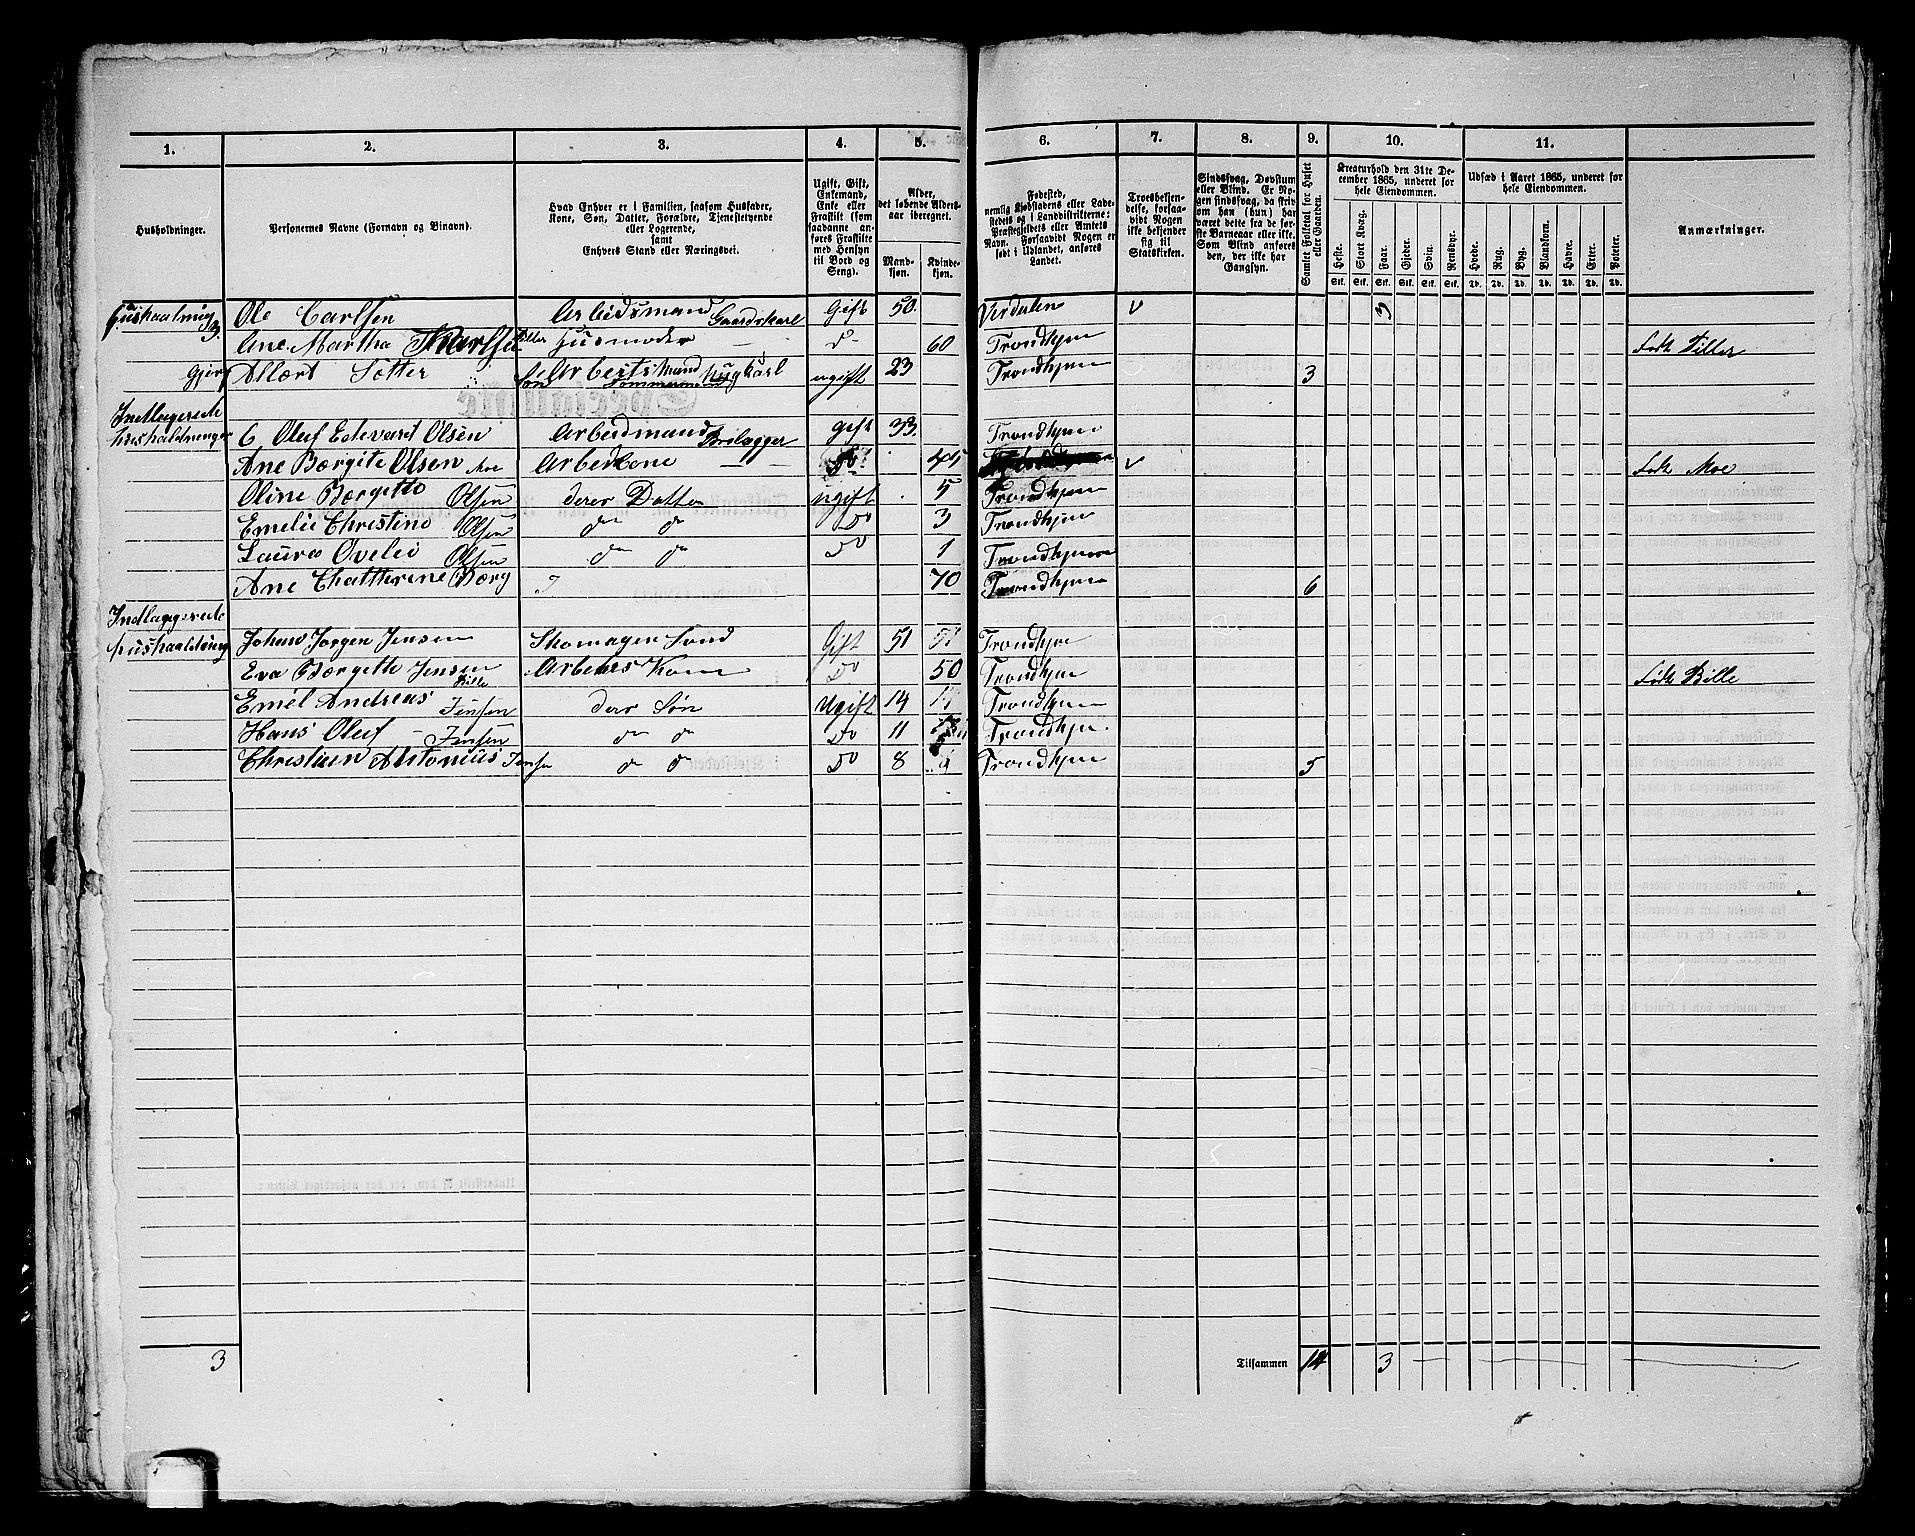 1. 2. 3. 4. 5. 6. 7. 8. 9. 10. 11.
Husholdninger.
Personernes Navne (Fornavn og Binavn).
Hvad Enhver er i Familien, saasom Husfader,
Kone, Søn, Datter, Forældre, Tjenestetyende
eller Logerende,
samt
Enhvers Stand eller Næringsvei.
Ugift, Gift,
Enkemand,
Enke eller
Fraskilt (som
saadanne an-
føres Fraskilte
med Hensyn
til Bord og
Seng).
Alder,
det løbende Alders-
aar iberegnet.
Mand-
kjøn.
Kvinde-
kjøn.
Fødested,
nemlig Kjøbstadens eller Lade-
stedets og i Landdistrikterne:
Præstegjeldets eller Amtets
Navn. Forsaavidt Nogen er
født i Udlandet, anføres
Landet.
Troesbekjen-
delse, forsaa-
vidt Nogen
ikke bekjender
sig til
Statskirken.
Sindssvag, Døvstum
eller Blind. Er No-
gen sindssvag, da skriv
om han (hun) har
været dette fra de før-
ste Barneaar eller ikke.
Som Blind anføres
den, der ikke har
Gangsyn.
Samlet Folketal for Huset
eller Gaarden.
Kreaturhold den 31te De-
cember 1865, underet for
hele Eiendommen.
Heste. Stort Kvæg. Faar. Gjeder. Svin. Rensdyr.
Stk. Stk. Stk. Stk. Stk. Stk.
Udsæd i Aaret 1865, underet for
hele Eiendommen.
Hvede. Rug. Byg. Blandkorn. Havre. Erter. Poteter.
Td. Td. Td. Td. Td. Td. Td.
Anmærkninger.
Ole Carlsen Arbeidsmand Gaardskarl Gift 50 Verdalen v 3
Ane Martha Karlsen Tiller Husmoder — D— 60 Trondhjem Født Tiller
Søn ugift 23 Trondhjem 3
Indlogerede
hushaldninger Oluf Edevard Olsen Arbeidmand Brolægger Gift 33 Trondhjem
Ane Bærgite Olsen Moe — Do 45 v født Moe
Oline Bærgitte Olsen deres Datter ugift 5 Trondhjem
Emelie Christine Olsen do do Do 3 Trondhjem
Olsen do do Do 1 Trondhjem
Ane Berg 70 Trondhjem 6
Johan Jørgen Jensen Skomager Svend Gift 51 Trondhjem
Eva Bærgitte Jensen Bille Arbeiers Kone Do 50 Trondhjem født Bille
Emel Andreas Jensen deres Søn Ugift 14 Trondhjem
Hans Oluf Jensen do do Do 11 Trondhjem
Christian Antonius Jensen do do Do 8 Trondhjem 5
3 Tilsammen 14 3